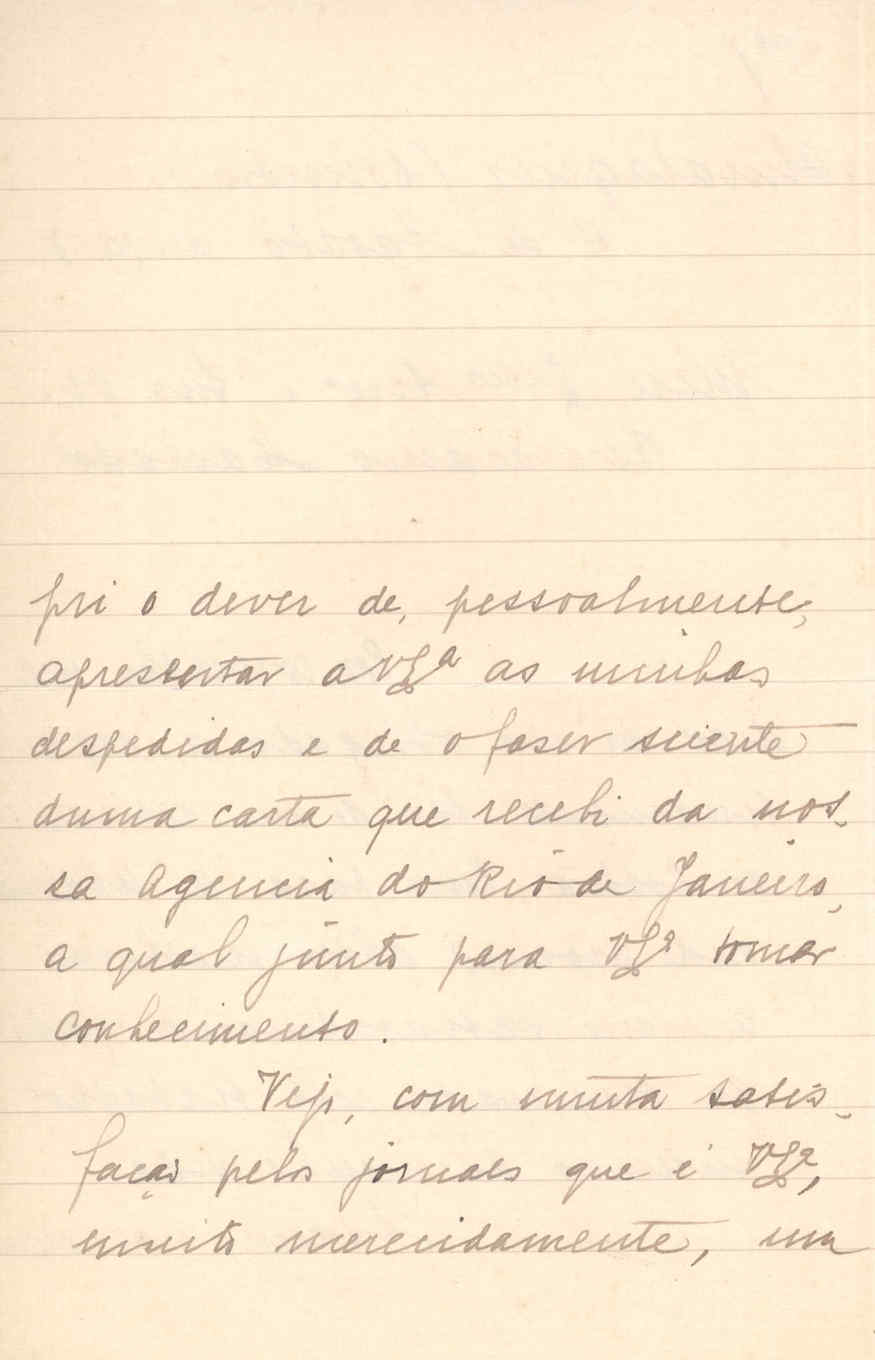 pri o dever de, pessoalmente,
apresentar a V Exª as minhas
despedidas e de o faser sciente
duma carta que recebi da nos-
sa Agencia do Rio de Janeiro,
a qual junto para V Exª tomar
conhecimento.
Vejo, com muita satis-
fação pelos jornaes que é V Exª,
muito merecidamente, um